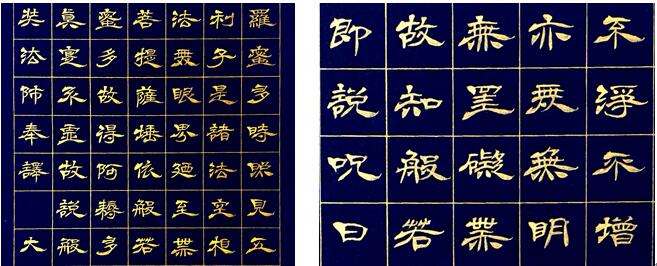 羅蜜多時照見五
利子是諸法空相
法無眼界廼至無
菩提薩埵依般若
蜜多故得阿耨多
真實不虛故說般
奘法師奉譯 大
不淨不增
亦無無明
無罣礙無
故知般若
即說呪曰